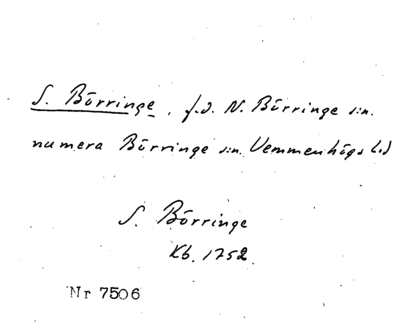 S. Börringe, f.d. N. Börringe sn.
numera Börringe sn. Vemmenhögs hd
S. Börringe
Kb. 1752.
Nr 7506